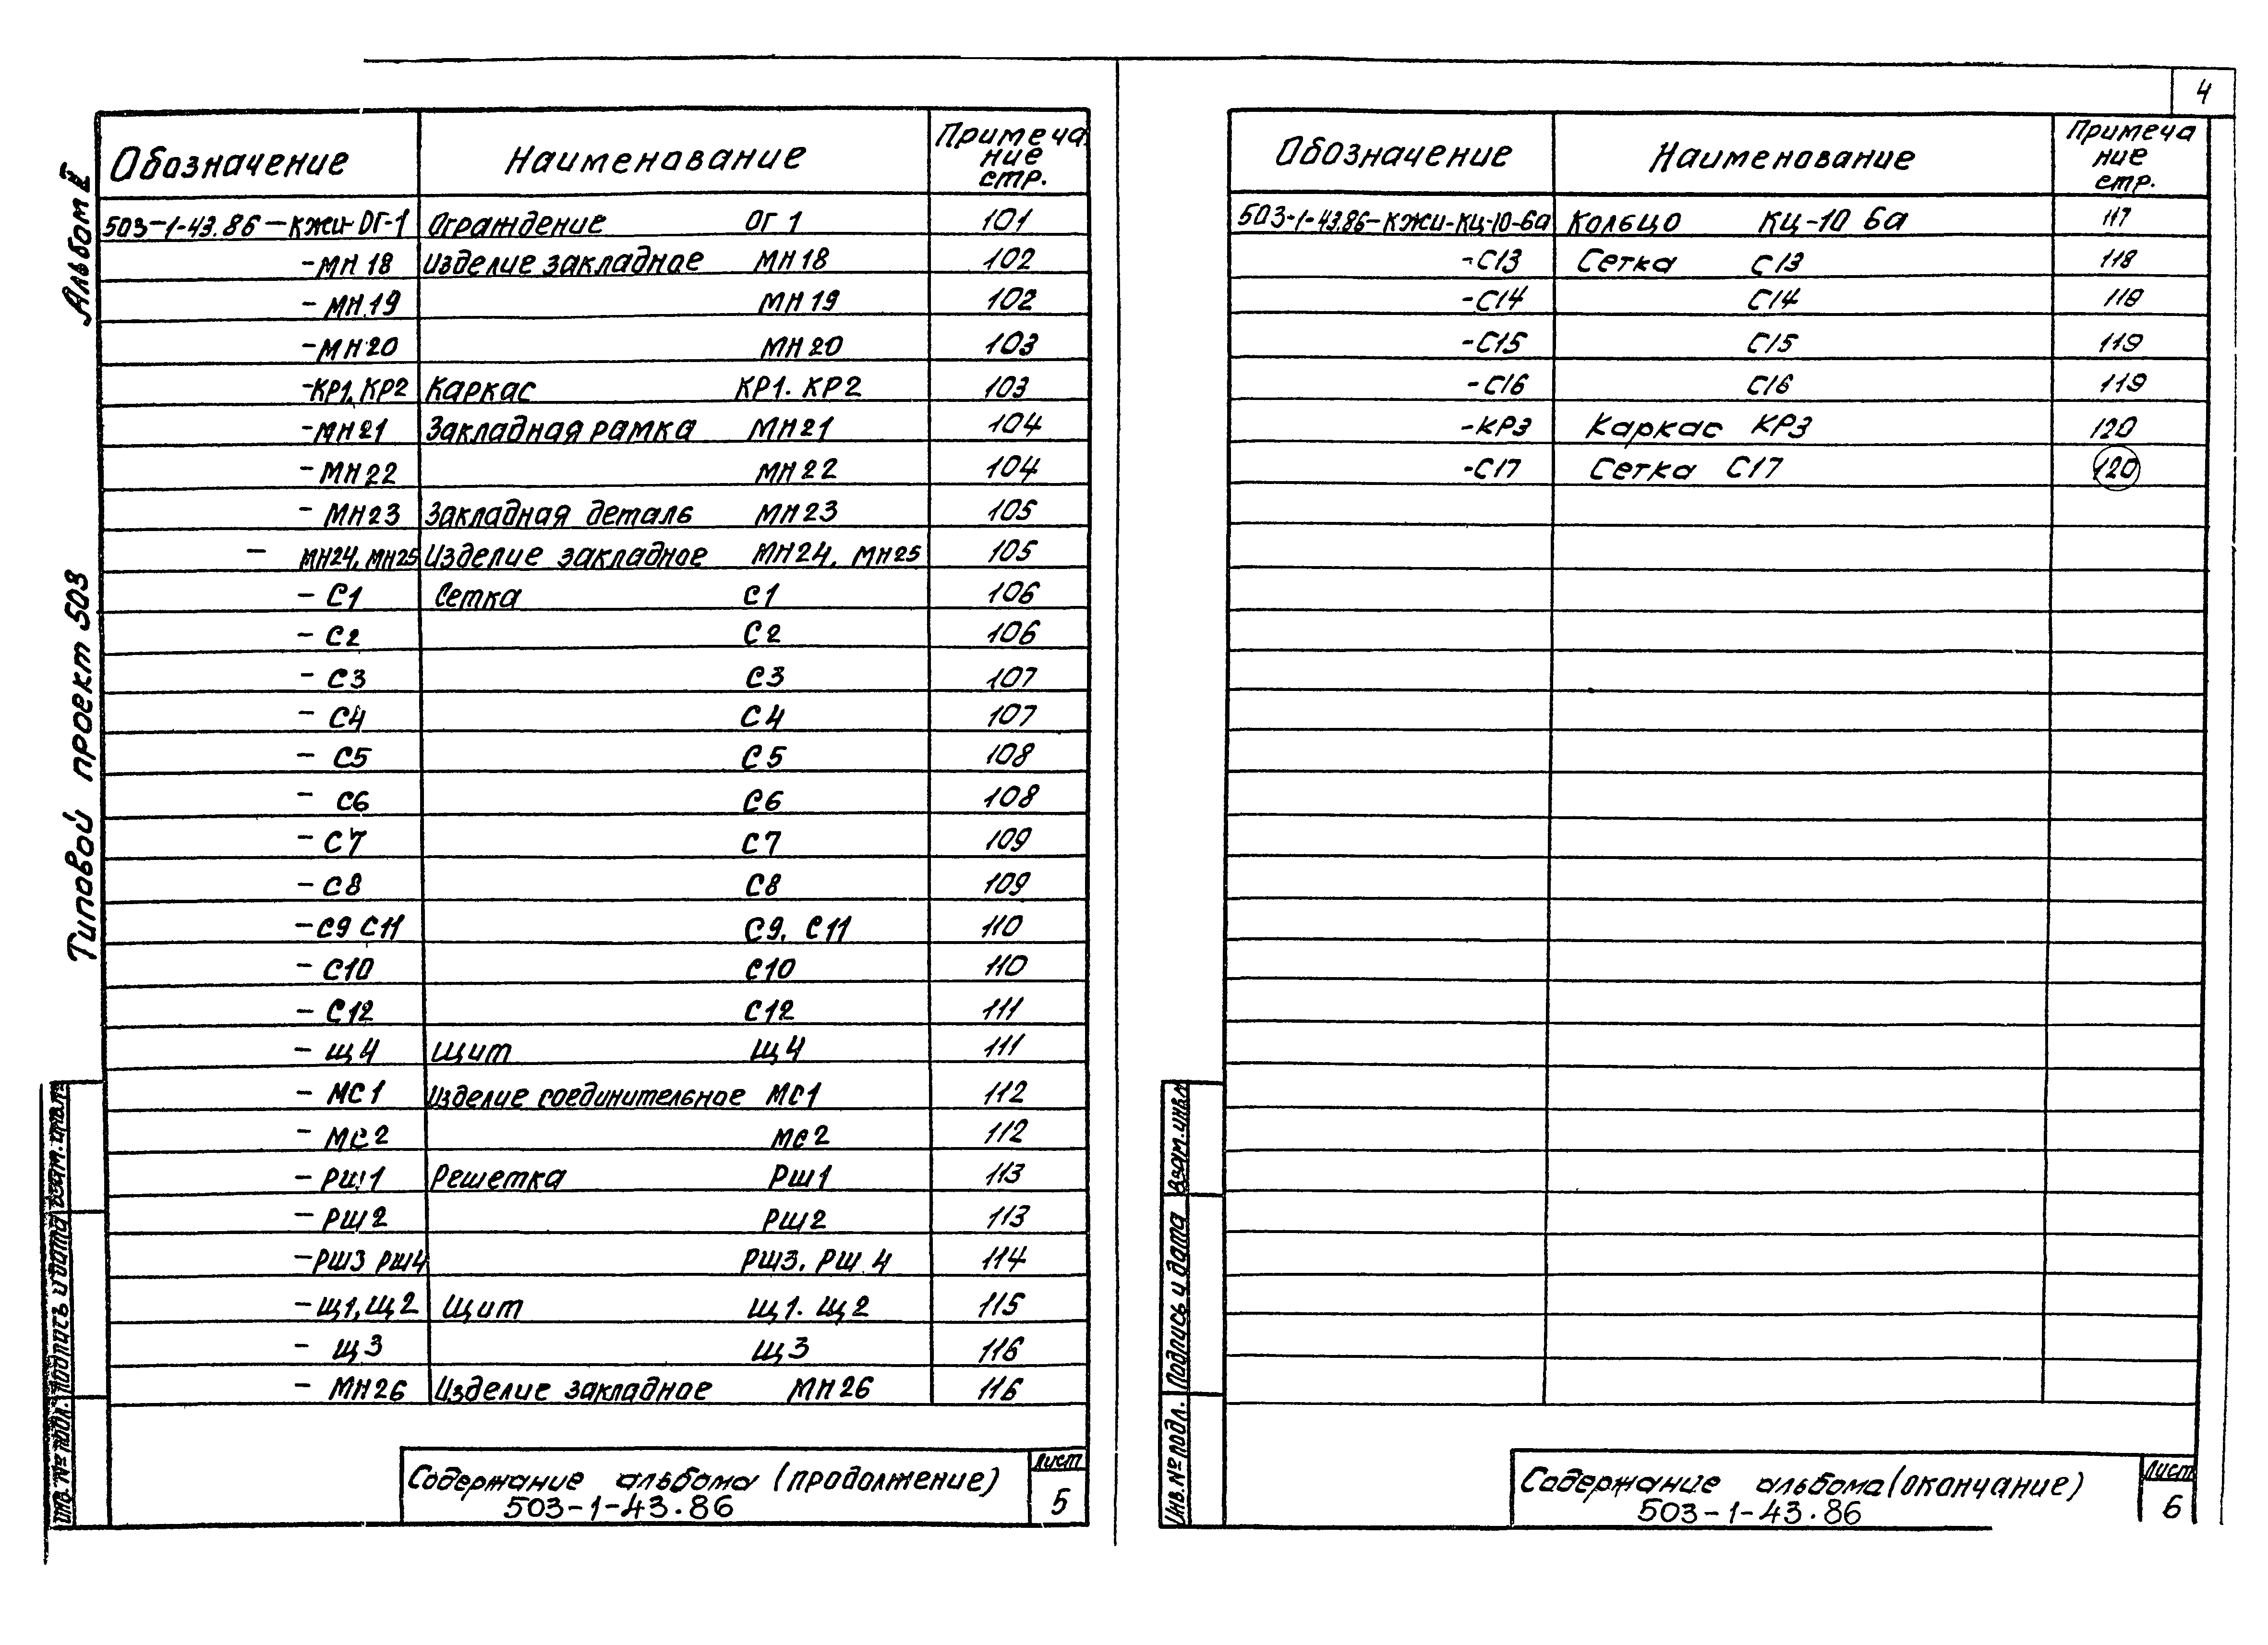 4
Альбом
Типовой проект 503
Обозначение Наименование Примеча
ние
стр.
503-1-43.86-КЖИ-ОГ-1 Ограждение ОГ 1 101
-МН18 Изделие закладное МН18 102
-МН19 МН19 102
-МН20 МН20 103
-КР1, КР2 Каркас КР1. КР2 103
-МН21 Закладная рамка МН21 104
-МН22 МН22 104
- МН23 Закладная деталь МН23 105
- МН24, МН25 Изделие закладное МН24, МН25 105
- С1 Сетка С1 106
- С2 С2 106
- С3 С3 107
- С4 С4 107
- С5 С5 108
- С6 С6 108
- С7 С7 109
- С8 С8 109
-С9 С11 С9, С11 110
- С10 С10 110
- С12 С12 111
- Щ4 Щит Щ4 111
- МС1 Изделие соединительное МС1 112
- МС2 МС2 112
- РШ1 Решетка РШ1 113
- РШ2 РШ2 113
-РШ3 РШ4 РШ3. РШ 4 114
-Щ1, Щ2 Щит Щ1. Щ2 115
- Щ3 Щ3 116
- МН26 Изделие закладное МН26 116
Содержание альбома (продолжение)
503-1-43.86
Лист
5
Инв. № подл. Подпись и дата Взам. инв.
Обозначение Наименование Примеча
ние
стр.
503-1-43.86-КЖИ-КЦ-10-6а Кольцо КЦ-10 6а 117
-С13 Сетка С13 118
-С14 С14 118
-С15 С15 119
-С16 С16 119
-КР3 Каркас КР3 120
-С17 Сетка С17 120
Содержание альбома (окончание)
503-1-43.86
Лист
6
Инв. № подл. Подпись и дата Взам. инв.